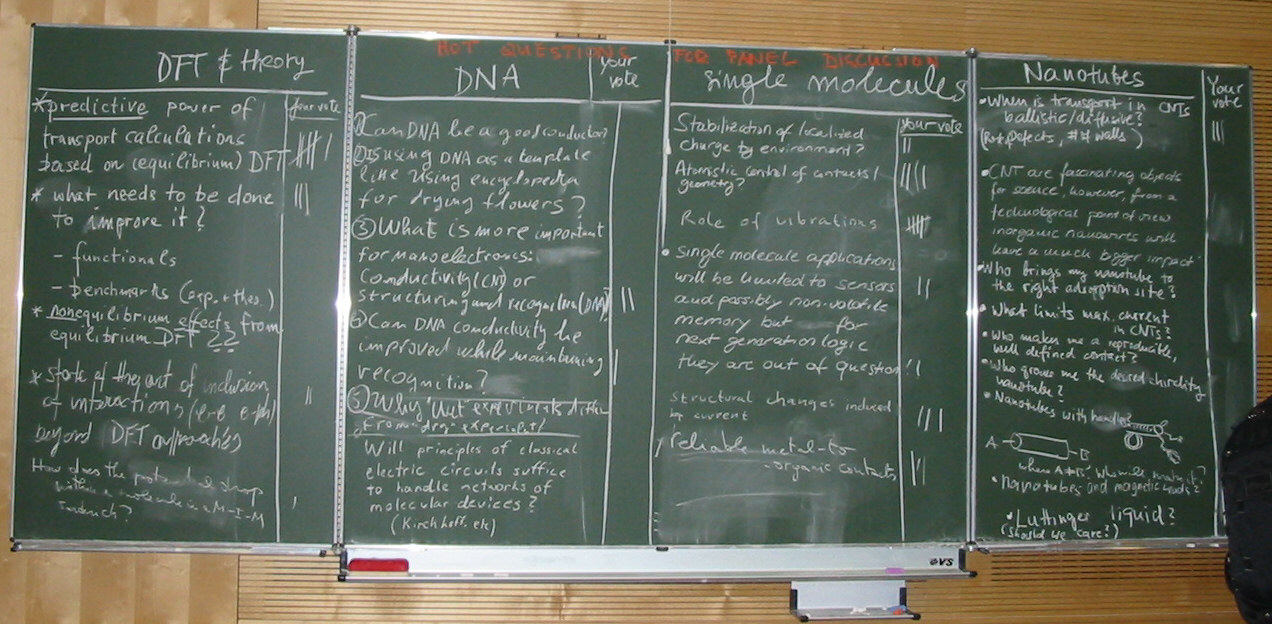 HOT QUESTIONS FOR PANEL DISCUSSION
DFT & theory
your vote
* predictive power of
transport calculations
based on (equilibrium) DFT
* what needs to be done
to improve it?
- functionals
- benchmarks (exp. + theo.)
* nonequilibrium effects from
equilibrium DFT ??
* State of the art of inclusion
of interactions (e-e e-ph)
beyond DFT approaches
How does the potential drop
within a molecule in a M-I-M
sandwich?
DNA
your
vote
① Can DNA be a good conductor?
② Is using DNA as a template
like using encyclopedia
for drying flowers?
③ What is more important
for nanoelectronics:
Conductivity (CNT) or
structuring and recognition (DNA)
④ Can DNA conductivity be
improved while maintaining
recognition?
⑤ Why "wet" experiments differ
from "dry" experiments?
Will principles of classical
electric circuits suffice
to handle networks of
molecular devices?
(Kirchhoff, etc)
Single molecules
your vote
Stabilization of localized
charge by environment?
Atomistic control of contacts /
geometry?
Role of vibrations
• Single molecule applications
will be limited to sensors
and possibly non-volatile
memory but for
next generation logic
they are out of question!
structural changes induced
by current
reliable metal-to
-organic contacts
Nanotubes
Your
vote
• When is transport in CNTs
ballistic/diffusive?
(Rot. Defects, # of walls)
• CNT are fascinating objects
for science, however, from a
technological point of view
inorganic nanowires will
have a much bigger impact
• Who brings my nanotube to
the right adsorption site?
• What limits max. current
in CNTs?
• Who makes me a reproducible,
well defined contact?
• Who grows me the desired chirality
nanotube?
• Nanotubes with handles
A B
when A≠B?
• Nanotubes and magnetic fields?
• Luttinger liquid?
(should we care?)
OVS